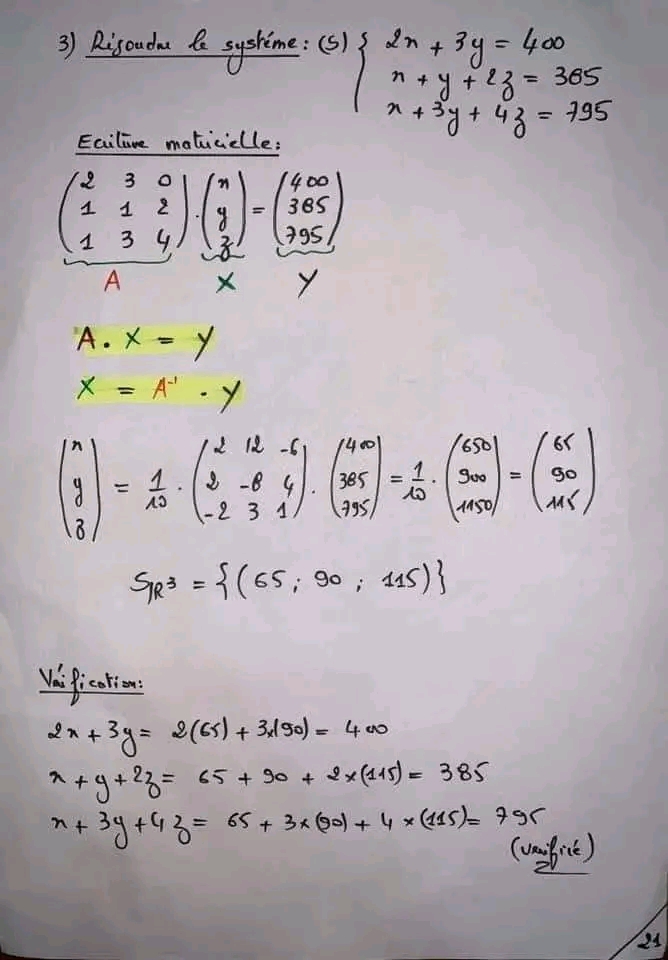 3) Résoudre le système : (S) { 2x + 3y = 400
x + y + 2z = 385
x + 3y + 4z = 795
Ecriture matricielle :
(2 3 0) (x) (400)
(1 1 2) . (y) = (385)
(1 3 4) (z) (795)
A X Y
A . X = Y
X = A⁻¹ . Y
(x) (2 12 -6) (400) (650) (65)
(y) = 1/10 . (2 -8 4) . (385) = 1/10 . (900) = (90)
(z) (-2 3 1) (795) (1150) (115)
S_IR³ = {(65 ; 90 ; 115)}
Vérification :
2x + 3y = 2(65) + 3x(90) = 400
x + y + 2z = 65 + 90 + 2×(115) = 385
x + 3y + 4z = 65 + 3×(90) + 4×(115) = 795
(vérifié)
21